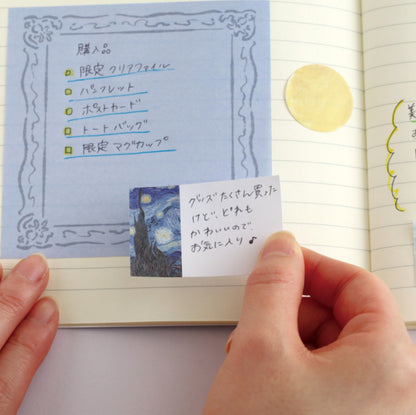 購入品
限定クリアファイル
パンフレット
ポストカード
トートバッグ
限定マグカップ
グッズたくさん買った
けど、どれも
かわいいので、
お気に入り♪